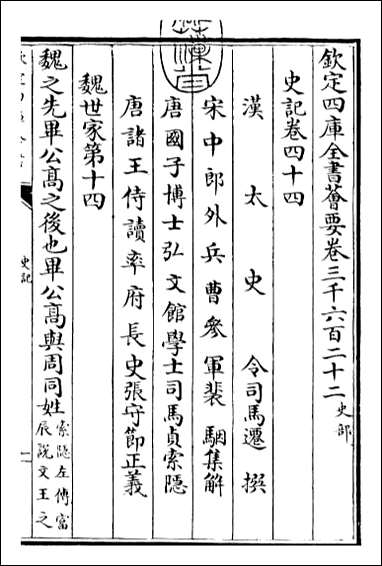 欽定四庫全書薈要卷三千六百二十二 史部
史記卷四十四
漢太史令司馬遷撰
宋中郎外兵曹參軍裴駰集解
唐國子博士弘文館學士司馬貞索隱
唐諸王侍讀率府長史張守節正義
魏世家第十四
魏之先畢公髙之後也畢公髙與周同姓索隱左傳富
辰說文王之
史記